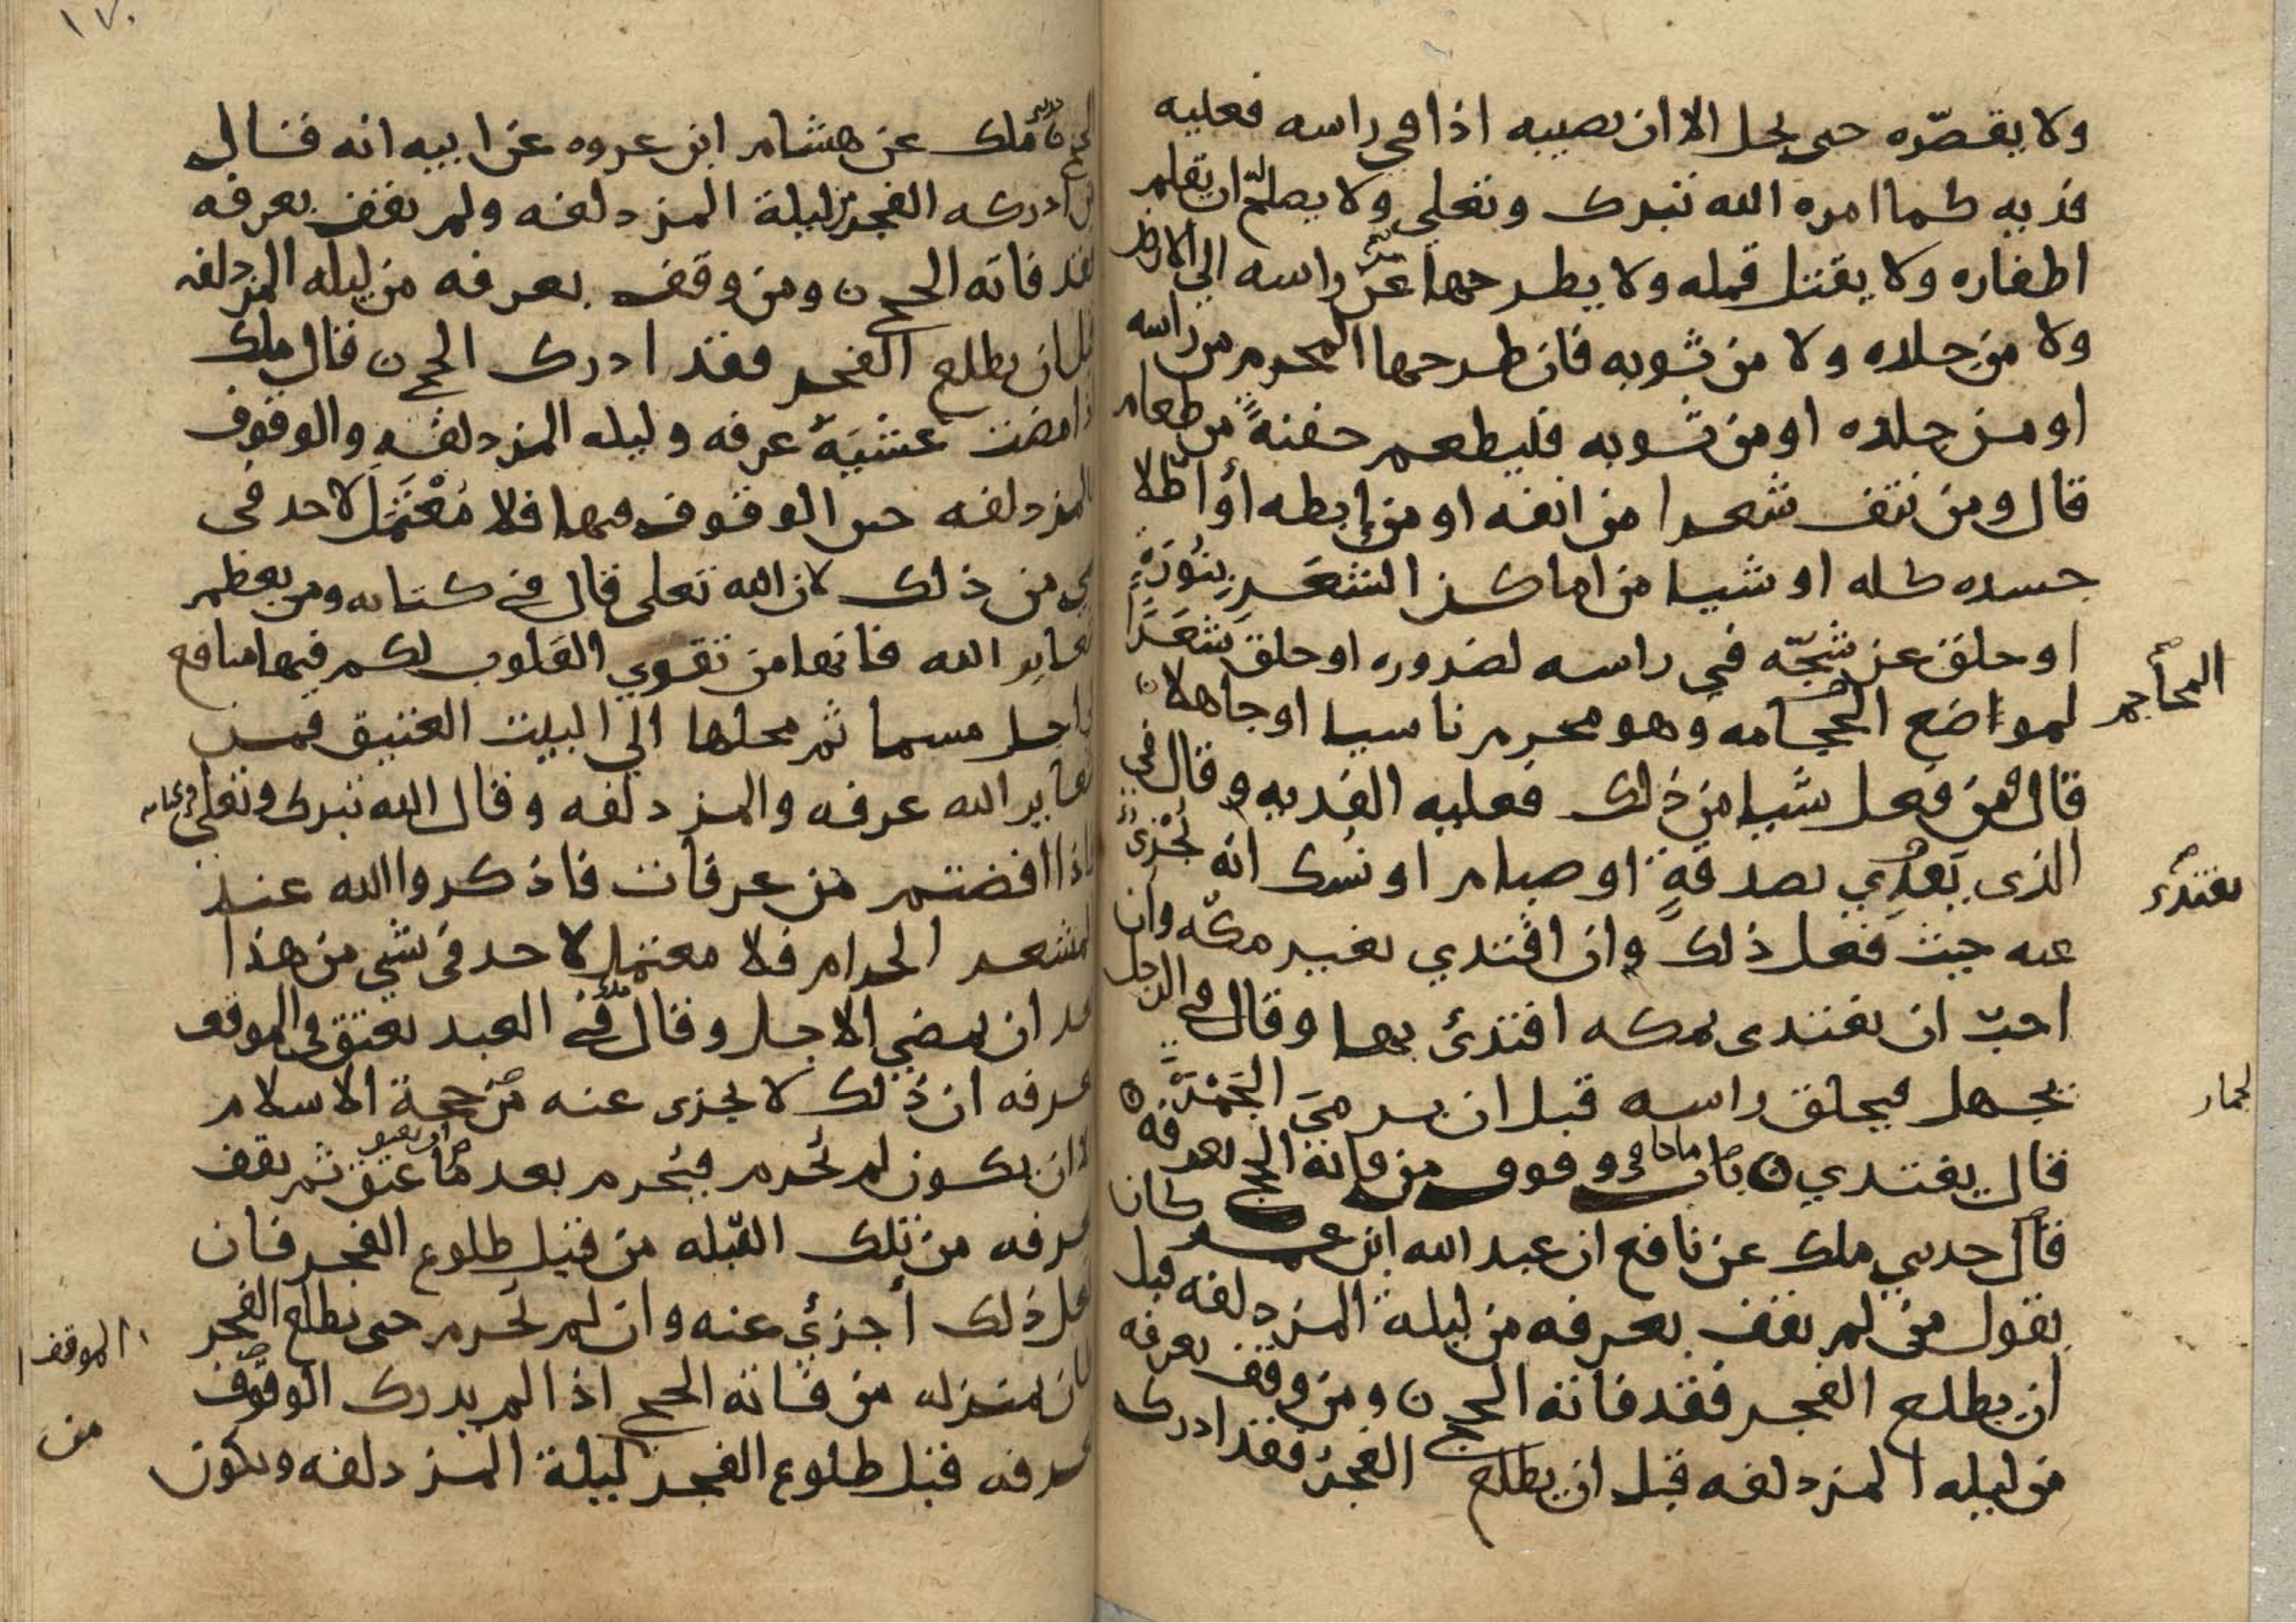 ولا يقصّره حتى يحل الا ان يصيبه اذا في راسه فعليه
فديه كما امره الله تبرك وتعلى ولا يصلح له ان يقلم
اطفاره ولا يقتل قمله ولا يطرحها عن راسه الى الارض
ولا من جلده ولا من ثوبه فان طرحها المحرم من راسه
او من جلده او من ثوبه فليطعم حفنةً من طعام
قال ومن نتف شعرا من انفه او من إبطه أو اطّلا
جسده كله او شيا من اماكن الشعَر بِنُورَةٍ
او حلق عن شجّه في راسه لضروره او حلق شَعَرًا
لمواضع الحجامه وهو محرم ناسيا او جاهلا ن
المحاجم
قال ومن فعل شيا من ذلك فعليه الفديه وقال في
الذى يَفدِي بصدقةٍ او صيام او نُسُك انه يُجْزئ
يفتدي
عنه حيث فعل ذلك وان افتدي بغير مكّه وان
احبّ ان يفتدى بمكه افتدئ بها وقال في الرجل
يجهل فيحلق راسه قبل ان يرميَ الجَمْرَةَ
لجمار
قال يفتدي ن باب ما جا في وقوف من فاته الحج بعرفه
قال حدثني ملك عن نافع ان عبد الله ابن عمر كان
يقول من لم يقف بعرفه من ليلة المزدلفه قبل
ان يطلع الفجر فقد فاته الحج ن ومن وقف بعرفه
من ليله المزدلفه قبل ان يطلع الفجرُ فقد ادرك
١٧٠
الحج ن ملك عن هشام ابن عروه عن ابيه انه قال
من ادركه الفجر من ليلة المزدلفه ولم يقف بعرفه
فقد فاته الحج ن ومن وقف بعرفه من ليله المزدلفه
قبل ان يطلع الفجر فقد ادرك الحج ن قال ملك
اذا مضت عشيّة عرفه وليله المزدلفه والوقوف
بالمزدلفه حين الوقوف فيها فلا مُعْتَمَل لاحد في
شي من ذلك لان الله تعلى قال في كتابه ومن يعظم
شعاير الله فانها من تقوي القلوب لكم فيها منافع
الى اجل مسما ثم محلها الي البيت العتيق فمن
شعاير الله عرفه والمزدلفه وقال الله تبرك وتعلى في كتابه
فاذا افضتم من عرفات فاذكروا الله عند
المشعر الحرام فلا معتمل لاحد في شي من هذا
بعد ان يمضي الاجل وقال ملك في العبد يعتق في الموقف
بعرفه ان ذلك لا يجزى عنه من حجة الاسلام
الا ان يكون لم يُحرم فيُحرم بعد ما عتق ثم يقف
او يعتق
بعرفه من تلك الليله من قبل طلوع الفجر فان
فعل ذلك أجزئ عنه وان لم يُحرم حتى يطلع الفجر
كان بمنزله من فاته الحج اذا لم يدرك الوقوف
الموقف
بعرفه قبل طلوع الفجر ليلة المزدلفه ويكون
من